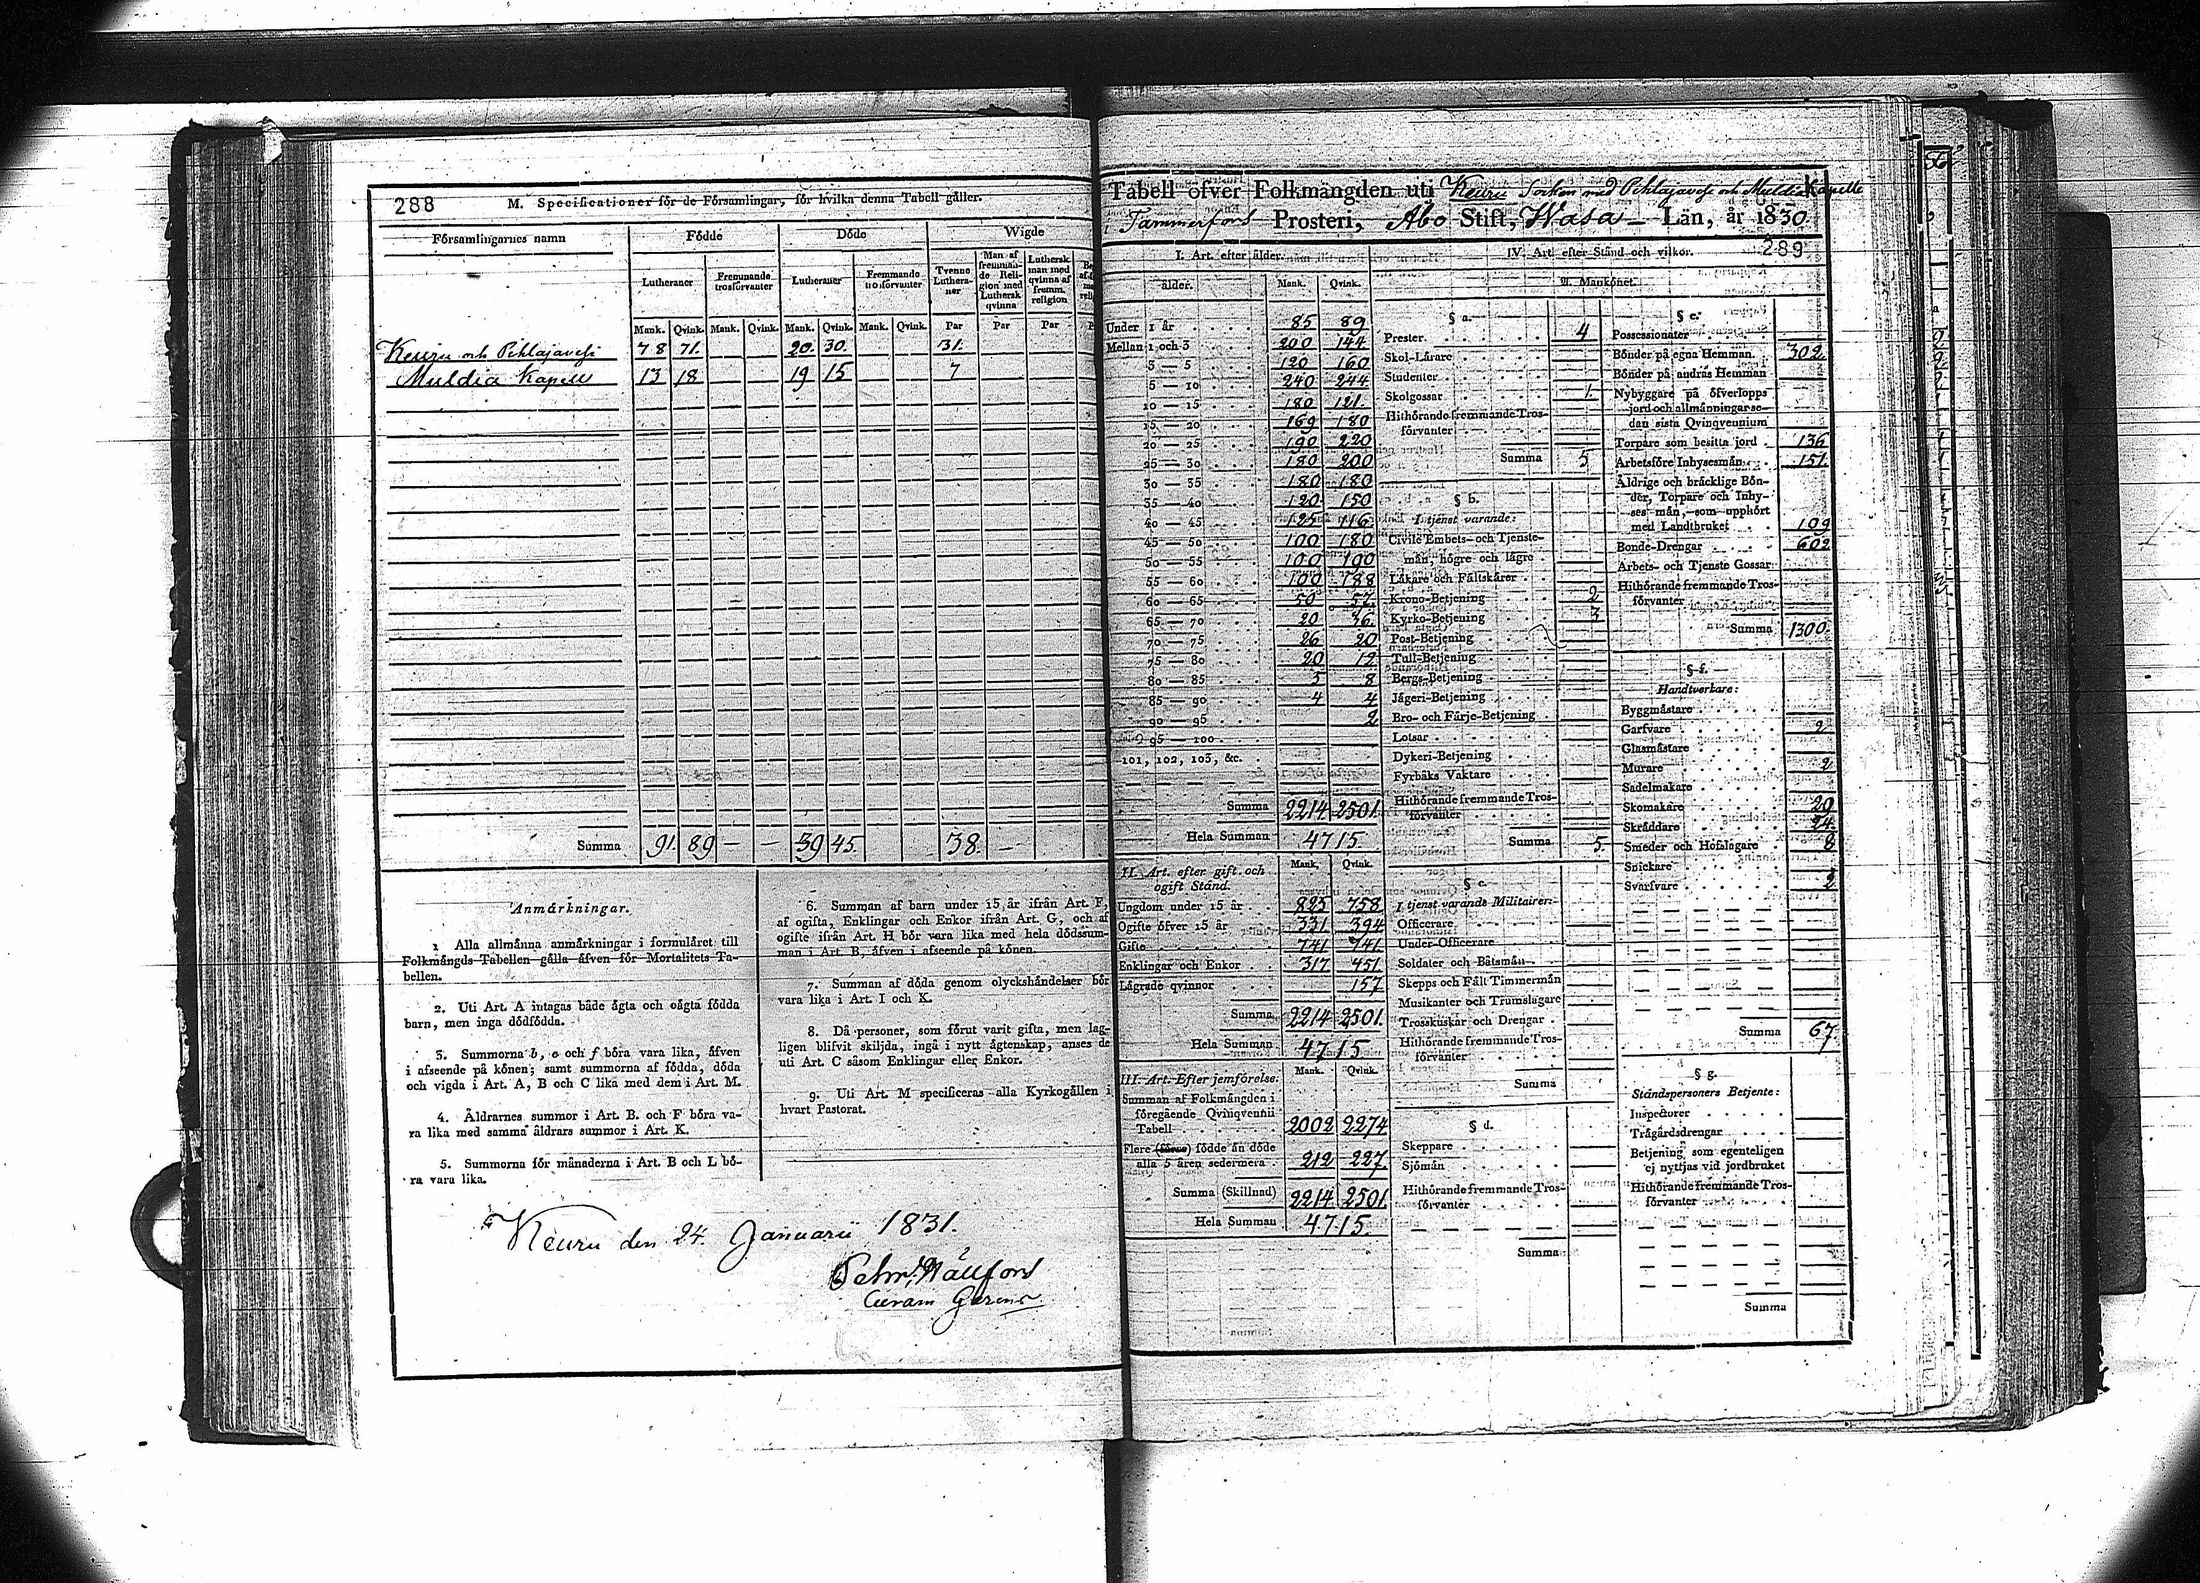 288
M. Specificationer för de Församlingar, för hvilka denna Tabell gäller.
Församlingarnes namn
Födde
Döde
Wigde
Lutheraner
Fremmande trosförvanter
Lutheraner
Fremmande trosförvanter
Tvenne Lutheraner
Man af fremmande Religion med Luthersk qvinna
Luthersk man med qvinna af fremm. religion
Mank. Qvink. Mank. Qvink. Mank. Qvink. Mank. Qvink. Par Par Par
Keuru och Pihlajavesi 78 71. 20. 30. 31.
Muldia Kapell 13 18 19 15 7
Summa 91. 89 — — 39 45. 38. —
Anmärkningar.
1 Alla allmänna anmärkningar i formuläret till
Folkmängds-Tabellen gälla äfven för Mortalitets-Ta-
bellen.
2. Uti Art. A intagas både ägta och oägta födda
barn, men inga dödfödda.
3. Summorna b, e och f böra vara lika, äfven
i afseende på könen; samt summorna af födda, döda
och vigda i Art. A, B och C lika med dem i Art. M.
4. Åldrarnes summor i Art. B. och F böra va-
ra lika med samma åldrars summor i Art. K.
5. Summorna för månaderna i Art. B och L bö-
ra vara lika.
6. Summan af barn under 15 år ifrån Art. F,
af ogifta, Enklingar och Enkor ifrån Art. G, och af
ogifte ifrån Art. H bör vara lika med hela dödssum-
man i Art. B, äfven i afseende på könen.
7. Summan af döda genom olyckshändelser bör
vara lika i Art. I och K.
8. Då personer, som förut varit gifta, men lag-
ligen blifvit skiljda, ingå i nytt ägtenskap, anses de
uti Art. C såsom Enklingar eller Enkor.
9. Uti Art. M specificeras alla Kyrkogällen i
hvart Pastorat.
Keuru den 24. Januarii 1831.
Tabell öfver Folkmängden uti Keuru Socken med Pihlajavesi och Muldia Kapelle
i Tammerfors Prosteri, Åbo Stift, Wasa Län, år 1830.
289
I. Art. efter ålder.
ålder. Mank. Qvink.
Under 1 år 85 89
Mellan 1 och 3 200 144
3 — 5 120 160
5 — 10 240 244
10 — 15 180 121.
15 — 20 169 180
20 — 25 190 220
25 — 30 180 200
30 — 35 180 180
35 — 40 120 150
40 — 45 125 116
45 — 50 100 180
50 — 55 100 190
55 — 60 100 188
60 — 65 50 57.
65 — 70 20 36.
70 — 75 26 20
75 — 80 20 12
80 — 85 5 8
85 — 90 4 4
90 — 95 2
95 — 100
101, 102, 103, &c.
Summa 2214 2501.
Hela Summan 4715.
II. Art. efter gift och ogift Stånd. Mank. Qvink.
Ungdom under 15 år 825 758
Ogifte öfver 15 år 331 394
Gifte 741 741.
Enklingar och Enkor 317 451.
Lägrade qvinnor 157
Summa 2214 2501.
Hela Summan 4715
III. Art. Efter jemförelse. Mank. Qvink.
Summan af Folkmängden i
föregående Qvinqvennii
Tabell 2002 2274
Flere (färre) födde än döde
alla 5 åren sedermera 212 227.
Summa (Skillnad) 2214 2501.
Hela Summan 4715.
IV. Art. efter Stånd och vilkor.
A. Mankönet.
§ a.
Prester 4
Skol-Lärare
Studenter
Skolgossar 1.
Hithörande fremmande Tros-
förvanter
Summa 5
§ b.
I tjenst varande:
Civile Embets- och Tjenste-
män, högre och lägre
Läkare och Fältskärer
Krono-Betjening 2
Kyrko-Betjening 3
Post-Betjening
Tull-Betjening
Bergs-Betjening
Jägeri-Betjening
Bro- och Färje-Betjening
Lotsar
Dykeri-Betjening
Fyrbåks Vaktare
Hithörande fremmande Tros-
förvanter
Summa 5.
§ c.
I tjenst varande Militairer:
Officerare
Under-Officerare
Soldater och Båtsmän
Skepps och Fält Timmermän
Musikanter och Trumslagare
Trosskuskar och Drengar
Hithörande fremmande Tros-
förvanter
Summa
§ d.
Skeppare
Sjömän
Hithörande fremmande Tros-
förvanter
Summa
§ e.
Possessionater
Bönder på egna Hemman 302.
Bönder på andras Hemman
Nybyggare på öfverlopps
jord och allmänningar se-
dan sista Qvinqvennium
Torpare som besitta jord 136
Arbetsföre Inhysesmän 151.
Äldrige och bräcklige Bön-
der, Torpare och Inhy-
ses män, som upphört
med Landtbruket 109
Bonde-Drengar 602
Arbets- och Tjenste Gossar
Hithörande fremmande Tros-
förvanter
Summa 1300.
§ f.
Handtverkare:
Byggmästare
Garfvare 2
Glasmästare
Murare 2
Sadelmakare
Skomakare 20
Skräddare 24.
Smeder och Hofslagare 8
Snickare
Svarfvare 2
Summa 67.
§ g.
Ståndspersoners Betjente:
Inspectorer
Trägårdsdrengar
Betjening som egenteligen
ej nyttjas vid jordbruket
Hithörande fremmande Tros-
förvanter
Summa